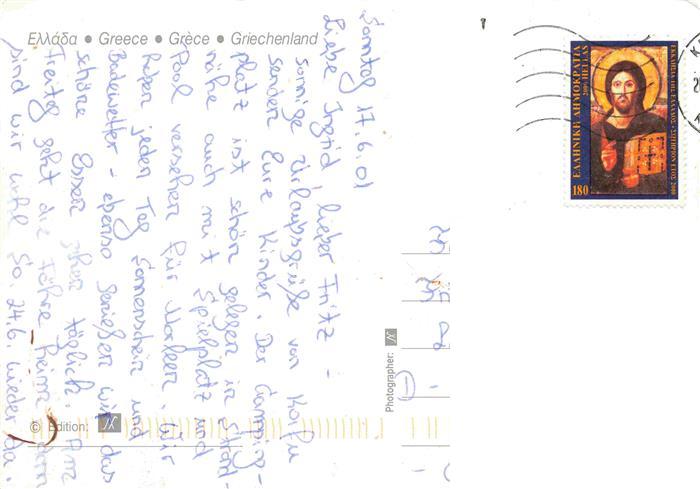 Ελλάδα • Greece • Grèce • Griechenland
Sonntag 17.6.01
Liebe Ingrid, lieber Fritz –
sonnige Urlaubsgrüße von Korfu
senden Eure Kinder. Der Camping-
platz ist schön gelegen in Strand-
nähe auch mit Spielplatz und
Pool versehen für Marleen. Wir
haben jeden Tag Sonnenschein und
Badewetter – ebenso genießen wir das
schöne Essen täglich. Am
Freitag geht die Fähre heim
sind wir wohl So. 24.6. wieder da.
© Edition:
Photographer:
ΕΛΛΗΝΙΚΗ ΔΗΜΟΚΡΑΤΙΑ
HELLAS
180